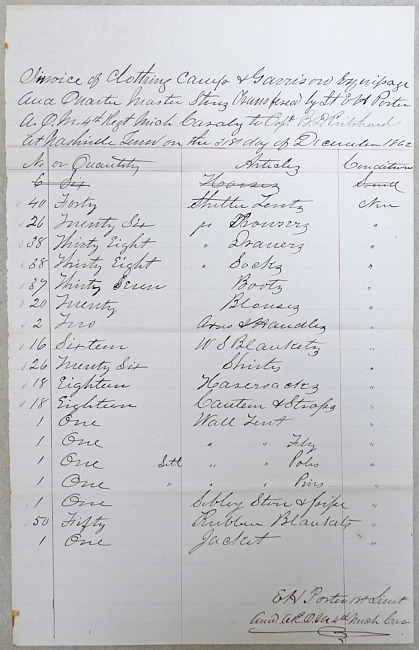 Invoice of Clothing Camp & Garrison Equipage
and Quarter Master Stores transfered by Lt E H Porter
A Q M 4th Regt Mich Cavalry to Capt B D Pritchard
at Nashville Tenn on the 31st day of December 1862
No or Quantity Articles Condition
6 Six Horses Good
40 Forty Shelter Tents New
26 Twenty Six pr Trousers "
38 Thirty Eight " Drawers "
38 Thirty Eight " Socks "
37 Thirty Seven Boots "
20 Twenty Blouses "
2 Two Axes & Handles "
16 Sixteen W S Blankets "
26 Twenty Six Shirts "
18 Eighteen Haversacks "
18 Eighteen Canteen & Straps "
1 One Wall Tent "
1 One " " Fly "
1 One Sett " " Poles "
1 One " " " Pins "
1 One Sibley Stove & pipe "
50 Fifty Rubber Blankets "
1 One Jacket "
E H Porter 1st Lieut
and A.R.Q.M 4th Mich Cav